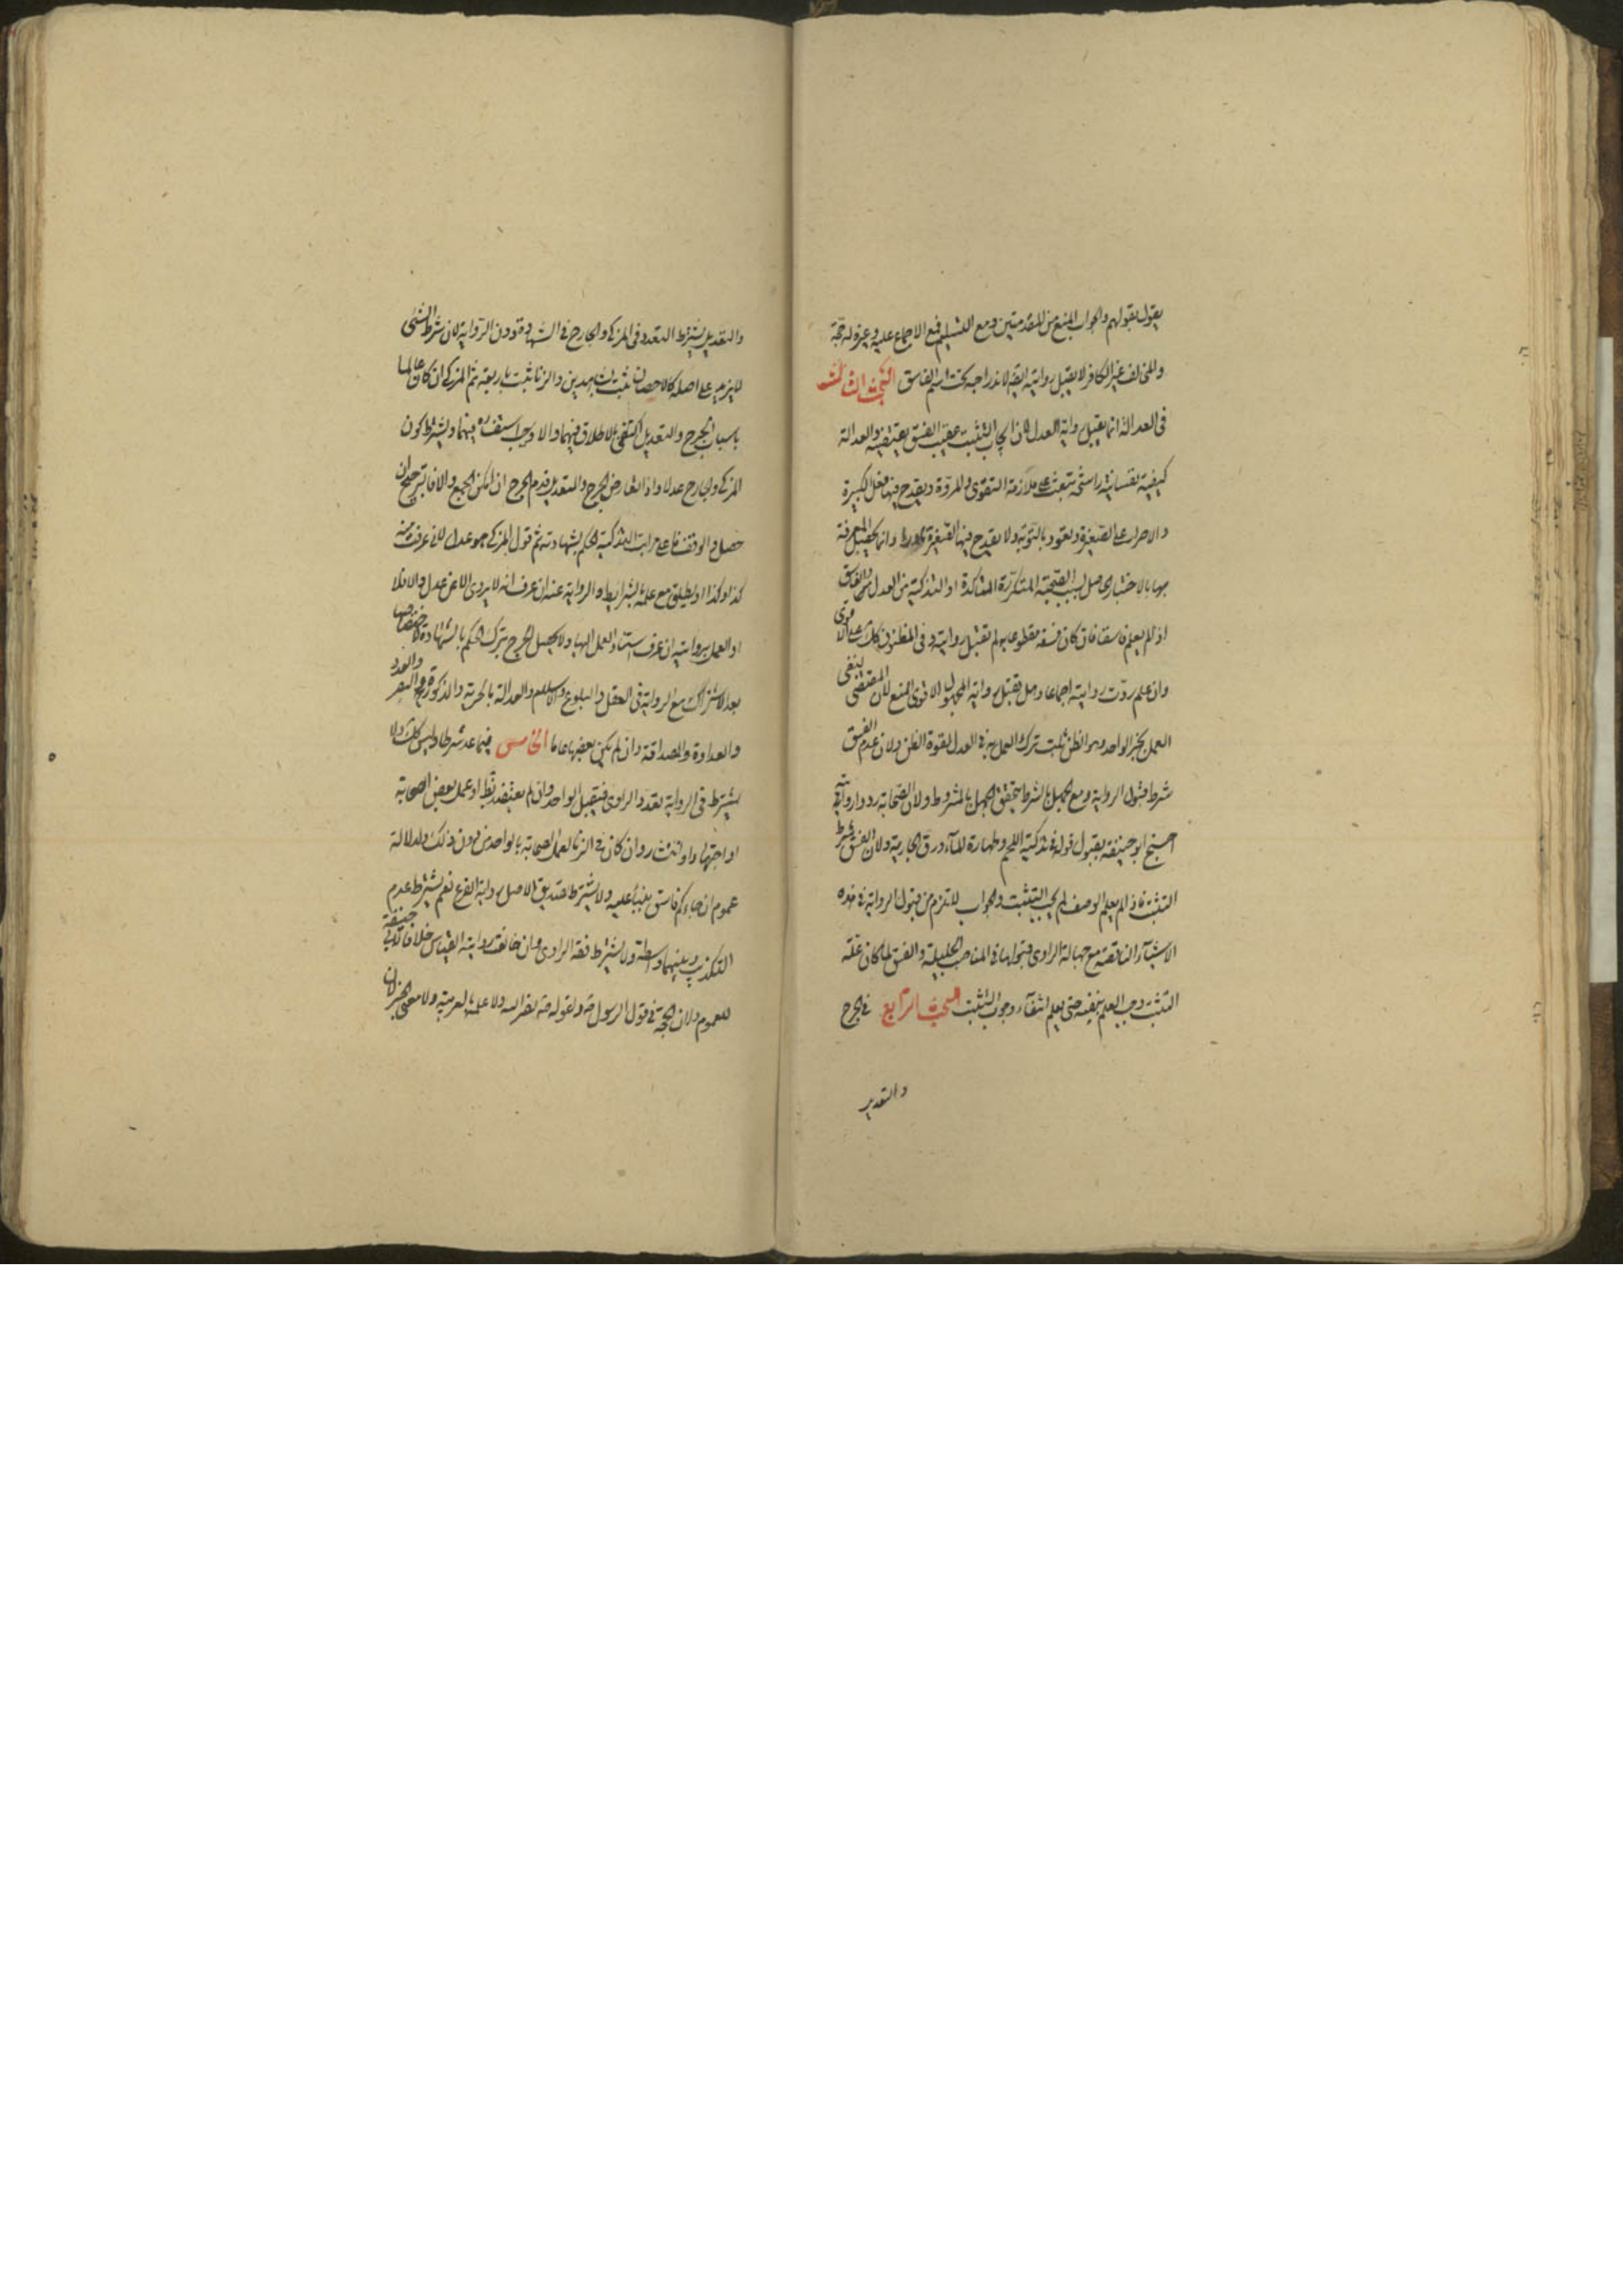 يقول بقولهم والجواب المنع من المقدمتين ومع التسليم فمنع الاجماع عليه وغيره له حجة
والمخالف غير الكافر لا يقبل روايته ايضا لاندراجه تحت اسم الفاسق البحث الثالث
فى العدالة انما يقبل رواية العدل لان ايجاب التثبت عقيب الفسق يقتضيه والعدالة
كيفية نفسانية راسخة تبعث على ملازمة التقوى والمروة ويقدح فيها فعل الكبيرة
والاصرار على الصغيرة ويعود بالتوبة ولا يقدح فيها الصغيرة نادرا وانما تحصل المعرفة
بها بالاختبار الحاصل بسبب الصحبة المتكررة المتاكدة او التزكية من العدل والفاسق
اذا لم يعلم فاسقا فان كان فسقه مقطوعا به لم تقبل روايته وفى المظنون كذلك على الاقوى
وان علم ردت روايته اجماعا وهل تقبل رواية المجهول الاقوى المنع لان المقتضى لنفى
العمل بخبر الواحد وهو الظن ثابت ترك العمل به فى العدل لقوة الظن ولان عدم الفسق
شرط قبول الرواية ومع الجهل بالشرط يتحقق الجهل بالمشروط ولان الصحابة ردوا روايته
احتج ابو حنيفة بقبول قوله فى تذكية اللحم وطهارة الماء ورق الجارية ولان الفسق شرط
التثبت فاذا لم يعلم الوصف لم يجب التثبت والجواب لا يلزم من قبول الرواية فى هذه
الاشياء الناقصة مع جهالة الراوى قبولها فى المناصب الجليلة والفسق لما كان علة
التثبت وجب العلم بنفيه حتى يعلم انتفاء وجوب التثبت البحث الرابع فى الجرح
والتعديل
والتعديل يشترط التعدد فى المزكى والجارح فى الشهادة دون الرواية لان شرط الشئ
لا يزيد على اصله كالاحصان يثبت بشاهدين والزنا يثبت باربعة ثم المزكى ان كان عالما
باسباب الجرح والتعديل اكتفى بالاطلاق فيهما والا وجب استفساره فيهما ويشترط كون
المزكى والجارح عدلا واذا تعارض الجرح والتعديل قدم الجرح ان امكن الجمع والا فالترجيح ان
حصل والا الوقف واعلى مراتب التزكية الحكم بشهادته ثم قول المزكى هو عدل لانى عرفت منه
كذا وكذا او يطلق مع علمه بالشرايط والرواية عنه ان عرف انه لا يروى الا عن عدل والا فلا
او العمل بروايته ان عرف استناد العمل اليها ولا يحصل الجرح بترك الحكم بالشهادة لاختصاصها
بعد الاشتراك مع الرواية فى العقل والبلوغ والاسلام والعدالة بالحرية والذكورة والبصر والعدد
والعداوة والصداقة وان لم يكن بعضها عاما الخامس فيما عد شرطا وليس كذلك لا
يشترط فى الرواية تعدد الراوى فيقبل الواحد وان لم يعتضد بظاهر او عمل بعض الصحابة
او اجتهاد او انتشار وان كان فى الزنا لعمل الصحابة بالواحد من دون ذلك ولدلالة
عموم ان جاءكم فاسق بنبأ عليه ولا يشترط تصديق الاصل رواية الفرع نعم يشترط عدم
التكذيب وبينهما واسطة ولا يشترط فقه الراوى وان خالفت روايته القياس خلافا لابى حنيفة
للعموم ولان الحجة فى قول الرسول ص ولقوله ص نضر الله ولا علمه بالعربية ولا معنى الخبر لان